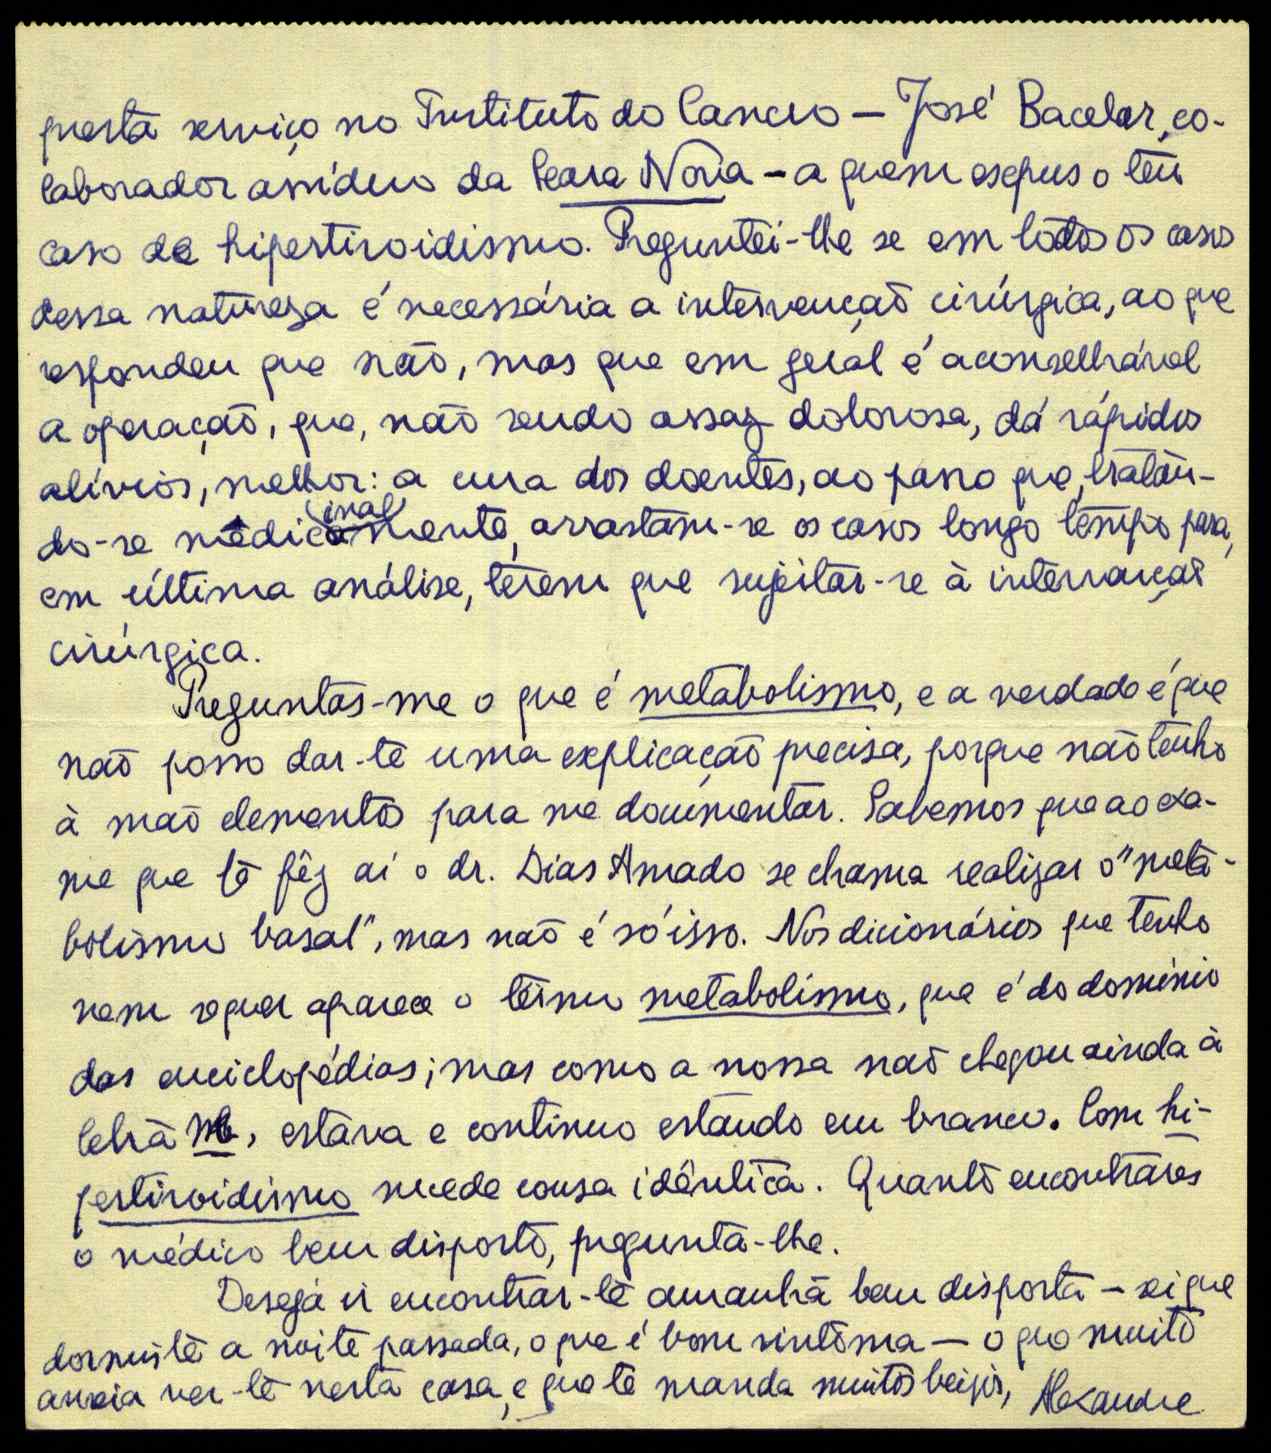 presta serviço no Instituto do Cancro — José Bacelar, co-
laborador assíduo da Seara Nova — a quem expus o teu
caso de hipertiroidismo. Preguntei-lhe se em todos os casos
dessa natureza é necessária a intervenção cirúrgica, ao que
respondeu que não, mas que em geral é aconselhável
a operação, que, não sendo assaz dolorosa, dá rápidos
alívios, melhor: a cura dos doentes, ao passo que, tratan-
do-se medicinalmente, arrastam-se os casos longo tempo para,
em última análise, terem que sujeitar-se à intervenção
cirúrgica.
Preguntas-me o que é metabolismo, e a verdade é que
não posso dar-te uma explicação precisa, porque não tenho
à mão elementos para me documentar. Sabemos que ao exa-
me que te fêz aí o dr. Dias Amado se chama realizar o "meta-
bolismo basal", mas não é só isso. Nos dicionários que tenho
nem sequer aparece o têrmo metabolismo, que é do domínio
das enciclopédias; mas como a nossa não chegou ainda à
letra M, estava e continuo estando em branco. Com hi-
pertiroidismo sucede cousa idêntica. Quanto encontrares
o médico bem disposto, pregunta-lhe.
Deseja ir encontrar-te amanhã bem disposta — sei que
dormiste a noite passada, o que é bom sintoma — o que muito
anseia ver-te nesta casa, e que te manda muitos beijos, Alexandre